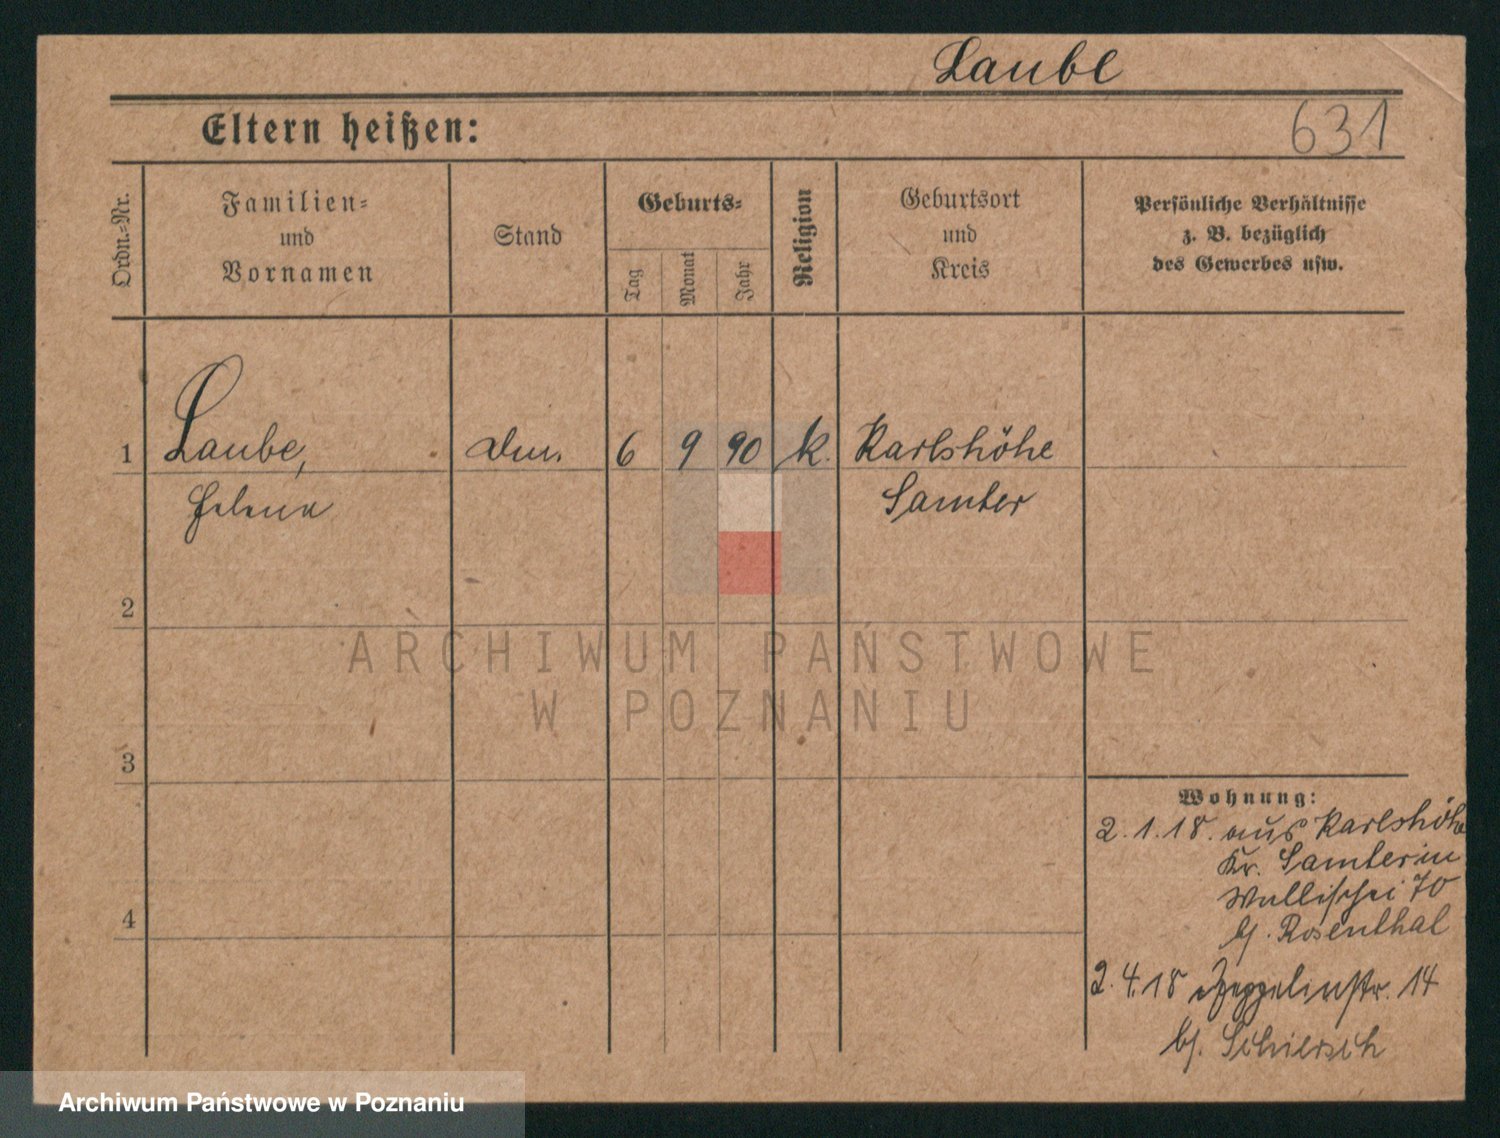 Laube
631
Eltern heißen:
Ordn.-Nr.
Familien-
und
Vornamen
Stand
Geburts-
Tag
Monat
Jahr
Religion
Geburtsort
und
Kreis
Persönliche Verhältnisse
z. B. bezüglich
des Gewerbes usw.
1 Laube, 6 9 90 k. Karlshöhe
Helene Samter
2
3
4
Wohnung:
2.1.18. aus Karlshöhe
Kr. Samter in
Wallischei 70
b/. Rosenthal
2.4.18 Zeppelinstr. 14
b/. Schiersch
ARCHIWUM PAŃSTWOWE
W POZNANIU
Archiwum Państwowe w Poznaniu